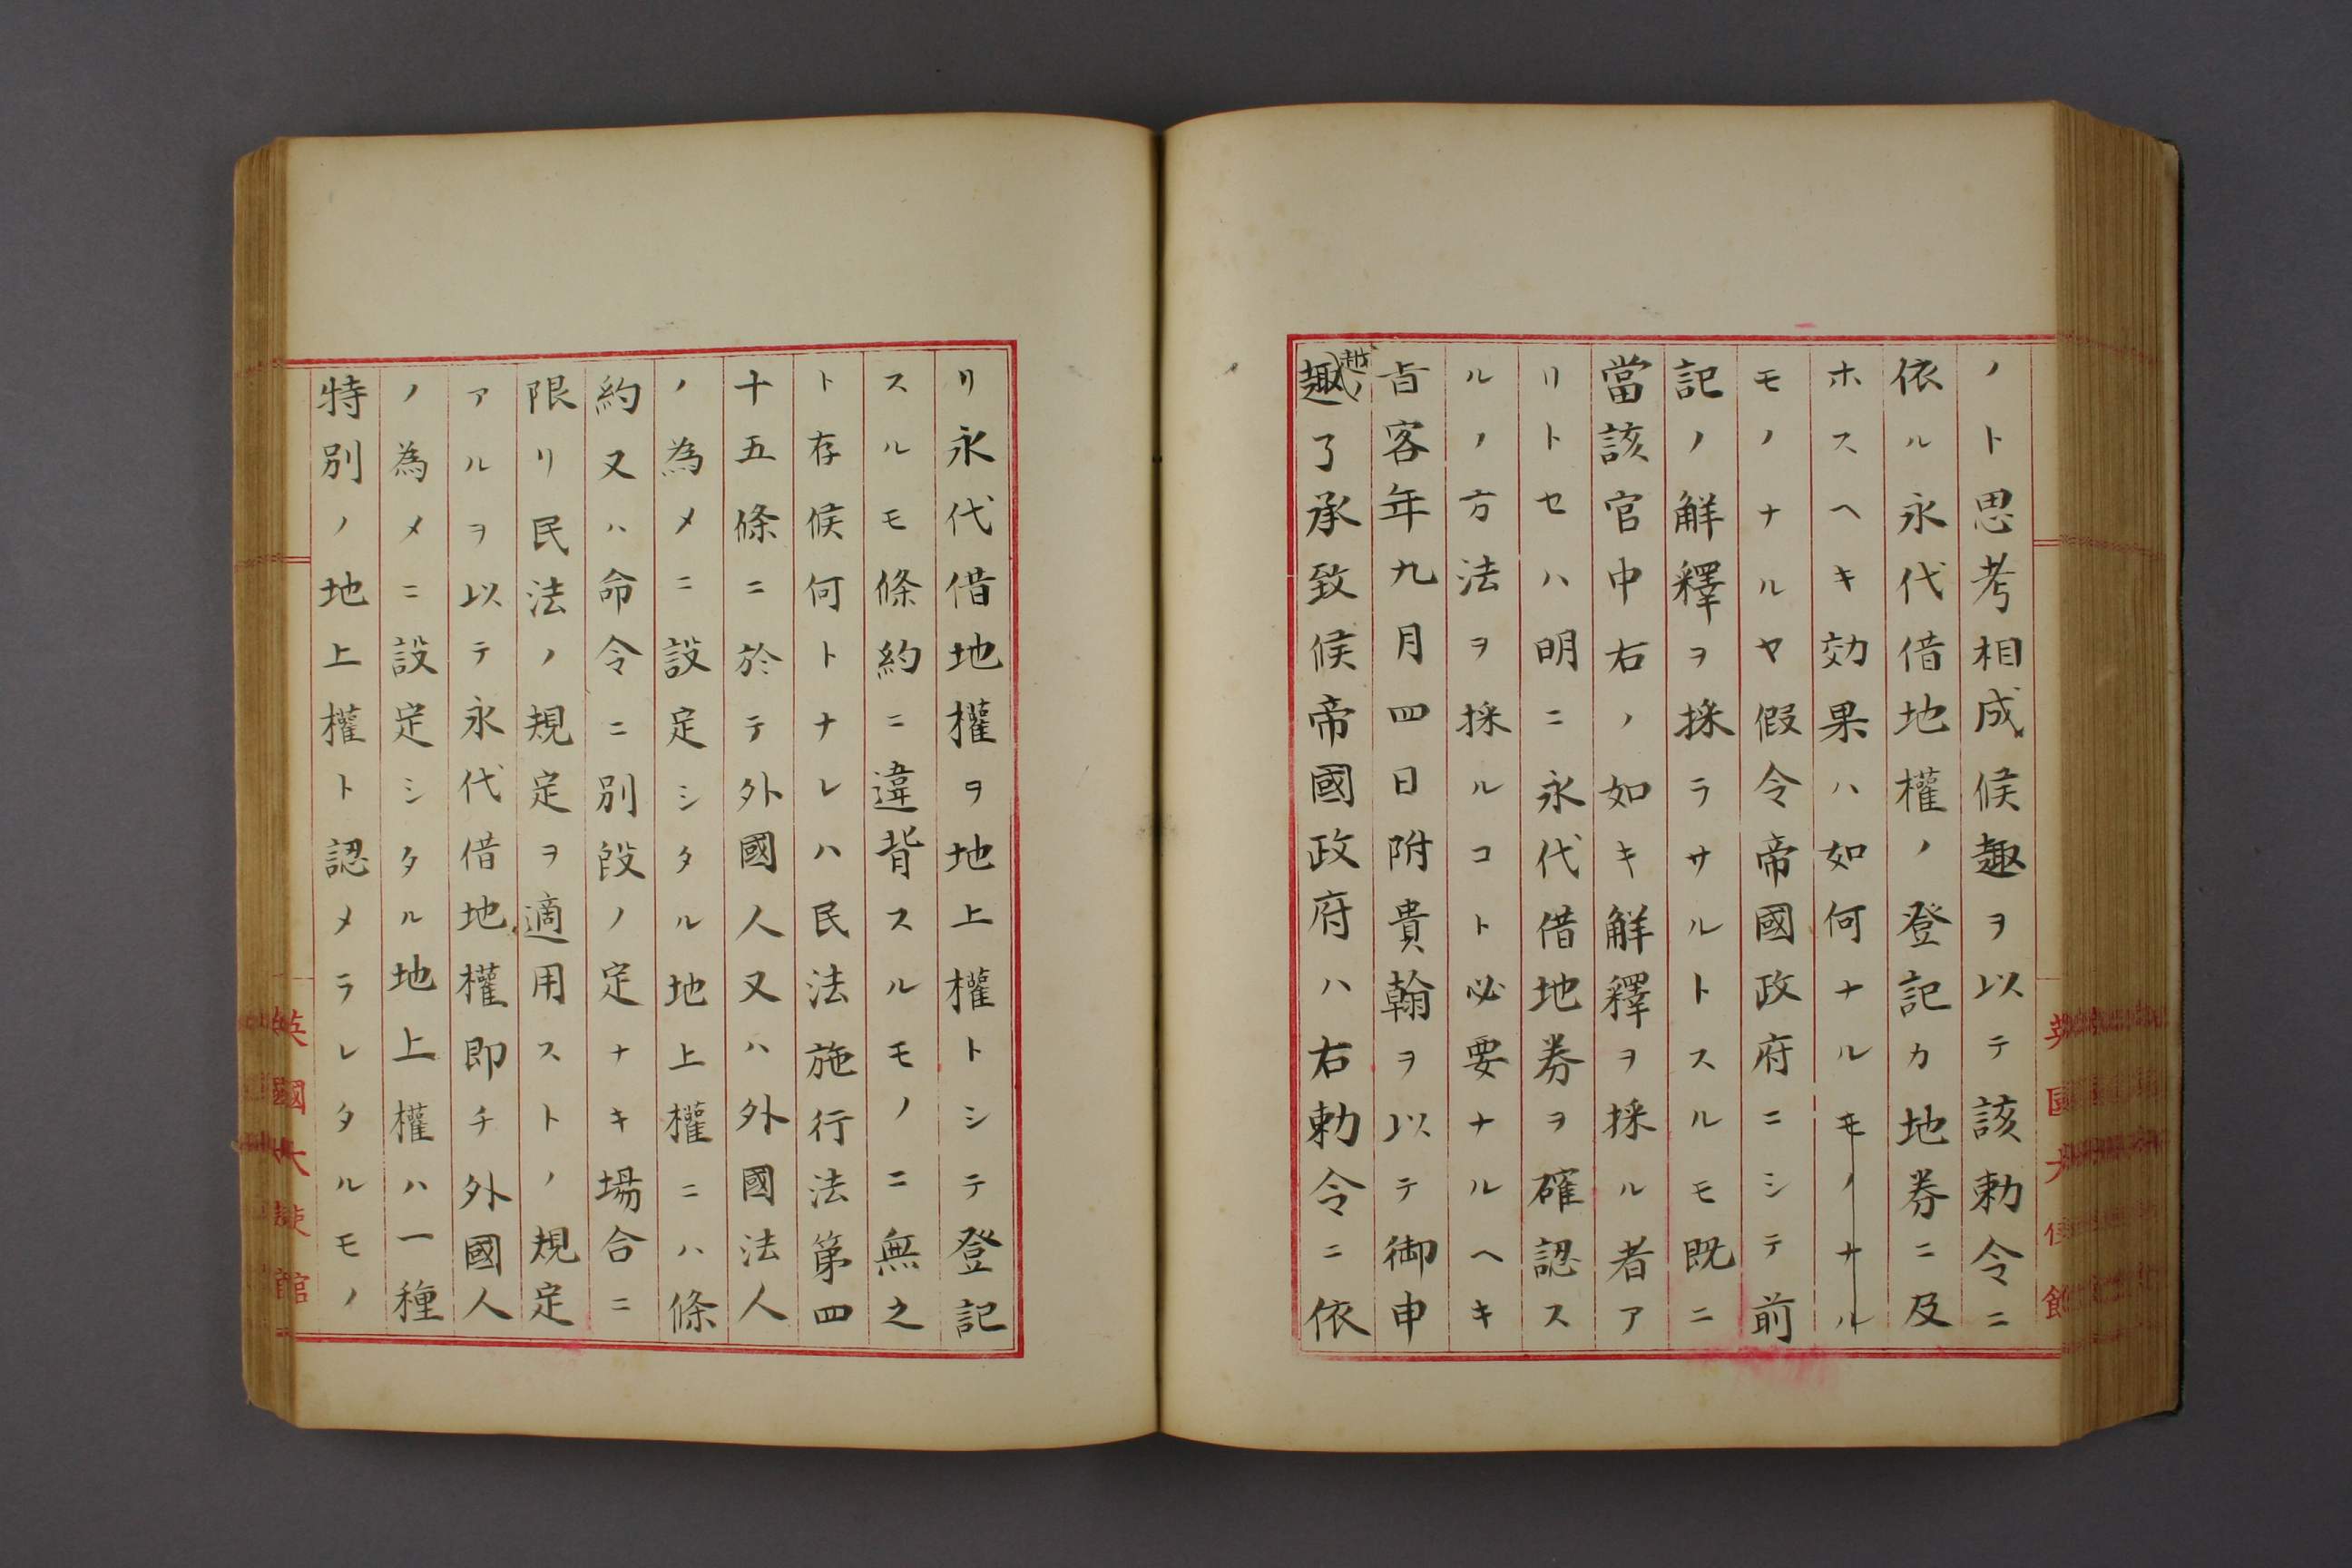 ノト思考相成候趣ヲ以テ該勅令ニ
依ル永代借地權ノ登記カ地券ニ及
ホスヘキ効果ハ如何ナルモノナル
モノナルヤ假令帝國政府ニシテ前
記ノ解釋ヲ採ラサルトスルモ既ニ
當該官中右ノ如キ解釋ヲ採ル者ア
リトセハ明ニ永代借地券ヲ確認ス
ルノ方法ヲ採ルコト必要ナルヘキ
旨客年九月四日附貴翰ヲ以テ御申
越
趣了承致候帝國政府ハ右勅令ニ依
リ永代借地權ヲ地上權トシテ登記
スルモ條約ニ違背スルモノニ無之
ト存候何トナレハ民法施行法第四
十五條ニ於テ外國人又ハ外國法人
ノ為メニ設定シタル地上權ニハ條
約又ハ命令ニ別段ノ定ナキ場合ニ
限リ民法ノ規定ヲ適用ストノ規定
アルヲ以テ永代借地權即チ外國人
ノ為メニ設定シタル地上權ハ一種
特別ノ地上權ト認メラレタルモノ
英國大使館